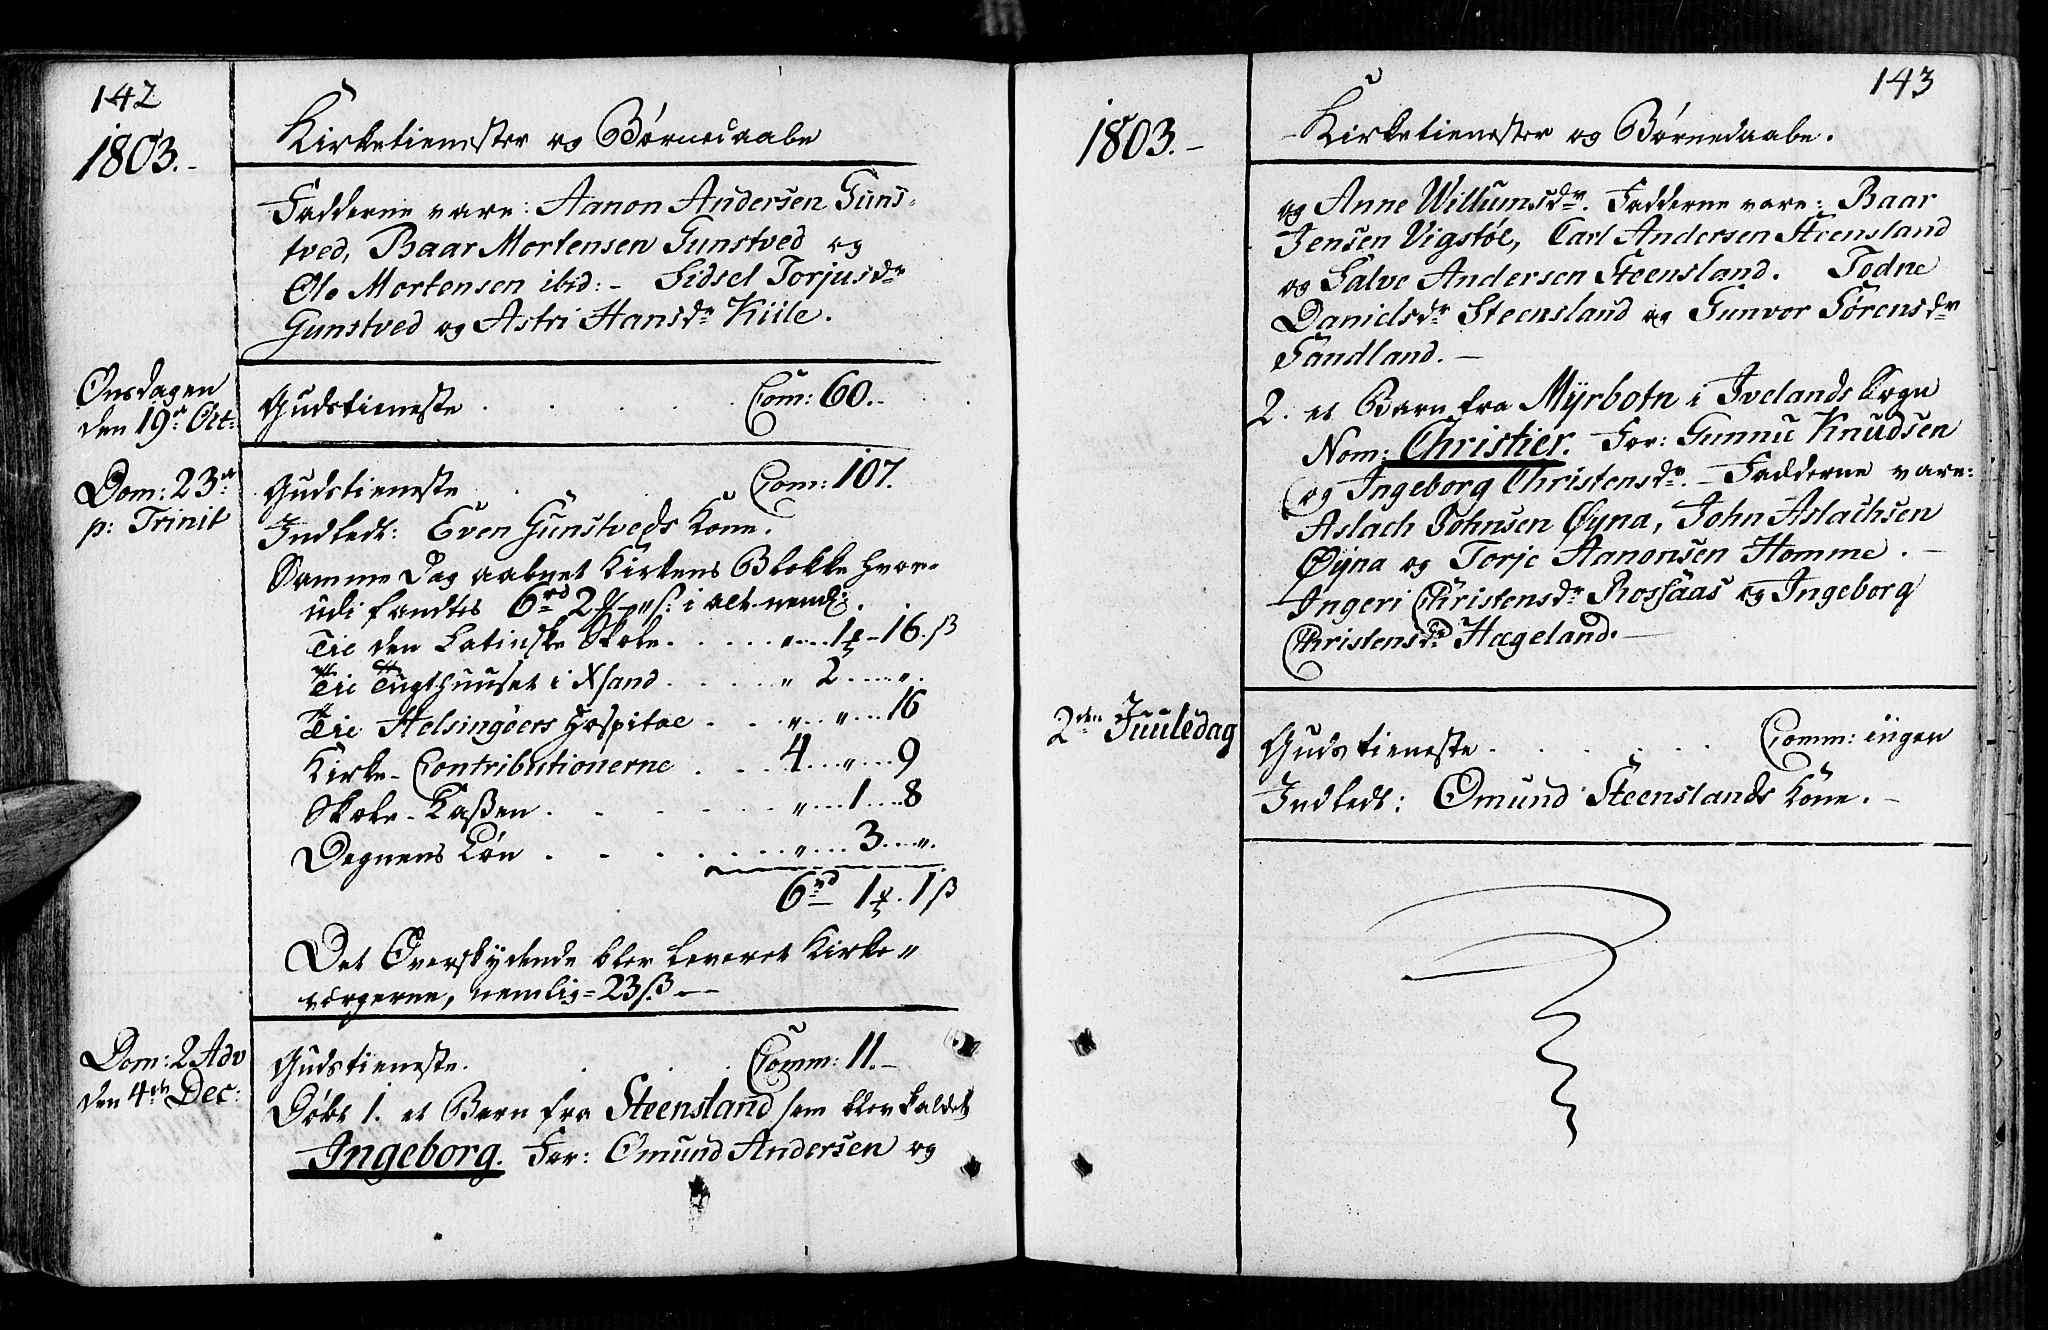 142
1803.-
Kirketienester og Børnedaabe
Fadderne vare: Aanon Andersen Guns-
tved, Baar Mortensen Gunstved og
Ole Mortensen ibid:- Sidsel Torjusdr
Gunstved og Astri Hansdr Kiile.
Onsdagen
den 19de Oct:
Gudstieneste . . . . . Com: 60.-
Dom: 23de
p: Trinit
Gudstieneste . . . Com: 107.
Indledt: Even Gunstveds Kone.
Samme Dag aabnet Kirkens Blokke hvor-
udi fandtes 6rd 2 " ß: i alt nemlig.
Til den Latinske Skole. . . . . „....1-16.ß
Til Tugthuuset i Xsand. . . . . „ 2....„.
Til Helsingöers Hospital . . . „...„...16
Kirke-Contributionerne . . . 4...„...9
Skole-Kaßen . . . . . . „....1....8
Degnens Løn . . . . . . „....3...„.
6rd 1. 1ß
Det Overskydende blev leveret Kirke„
vergerne, nemlig=23ß.--
Dom: 2 Adv
den 4de Dec:
Gudstieneste. . . . Comm: 11.-
Døbt 1. et Barn fra Steensland som blev kaldet
Ingeborg. For: Omund Andersen og
143
1803.-
Kirketienester og Børnedaabe.
og Anne Willumsdr. Fadderne vare: Baar
Jensen Vigstöl, Carl Andersen Steensland
og Salve Andersen Steensland. Todne
Danielsdr Steensland og Gunvor Sörensdr
Sandland.-
2. et Barn fra Myrbotn i Ivelands Sogn
Nom: Christier. For: Gunnu Knudsen
og Ingeborg Christensdr.- Fadderne vare:
Aslach Johnsen Øyna, John Aslachsen
Øyna og Torje Aanonsen Homme.-
Ingeri Christensdr Rossaas og Ingeborg
Christensdr Hageland.-
2den Juuledag
Gudstieneste. . . . . . Comm: ingen
Indledt: Omund Steenslands Kone.-